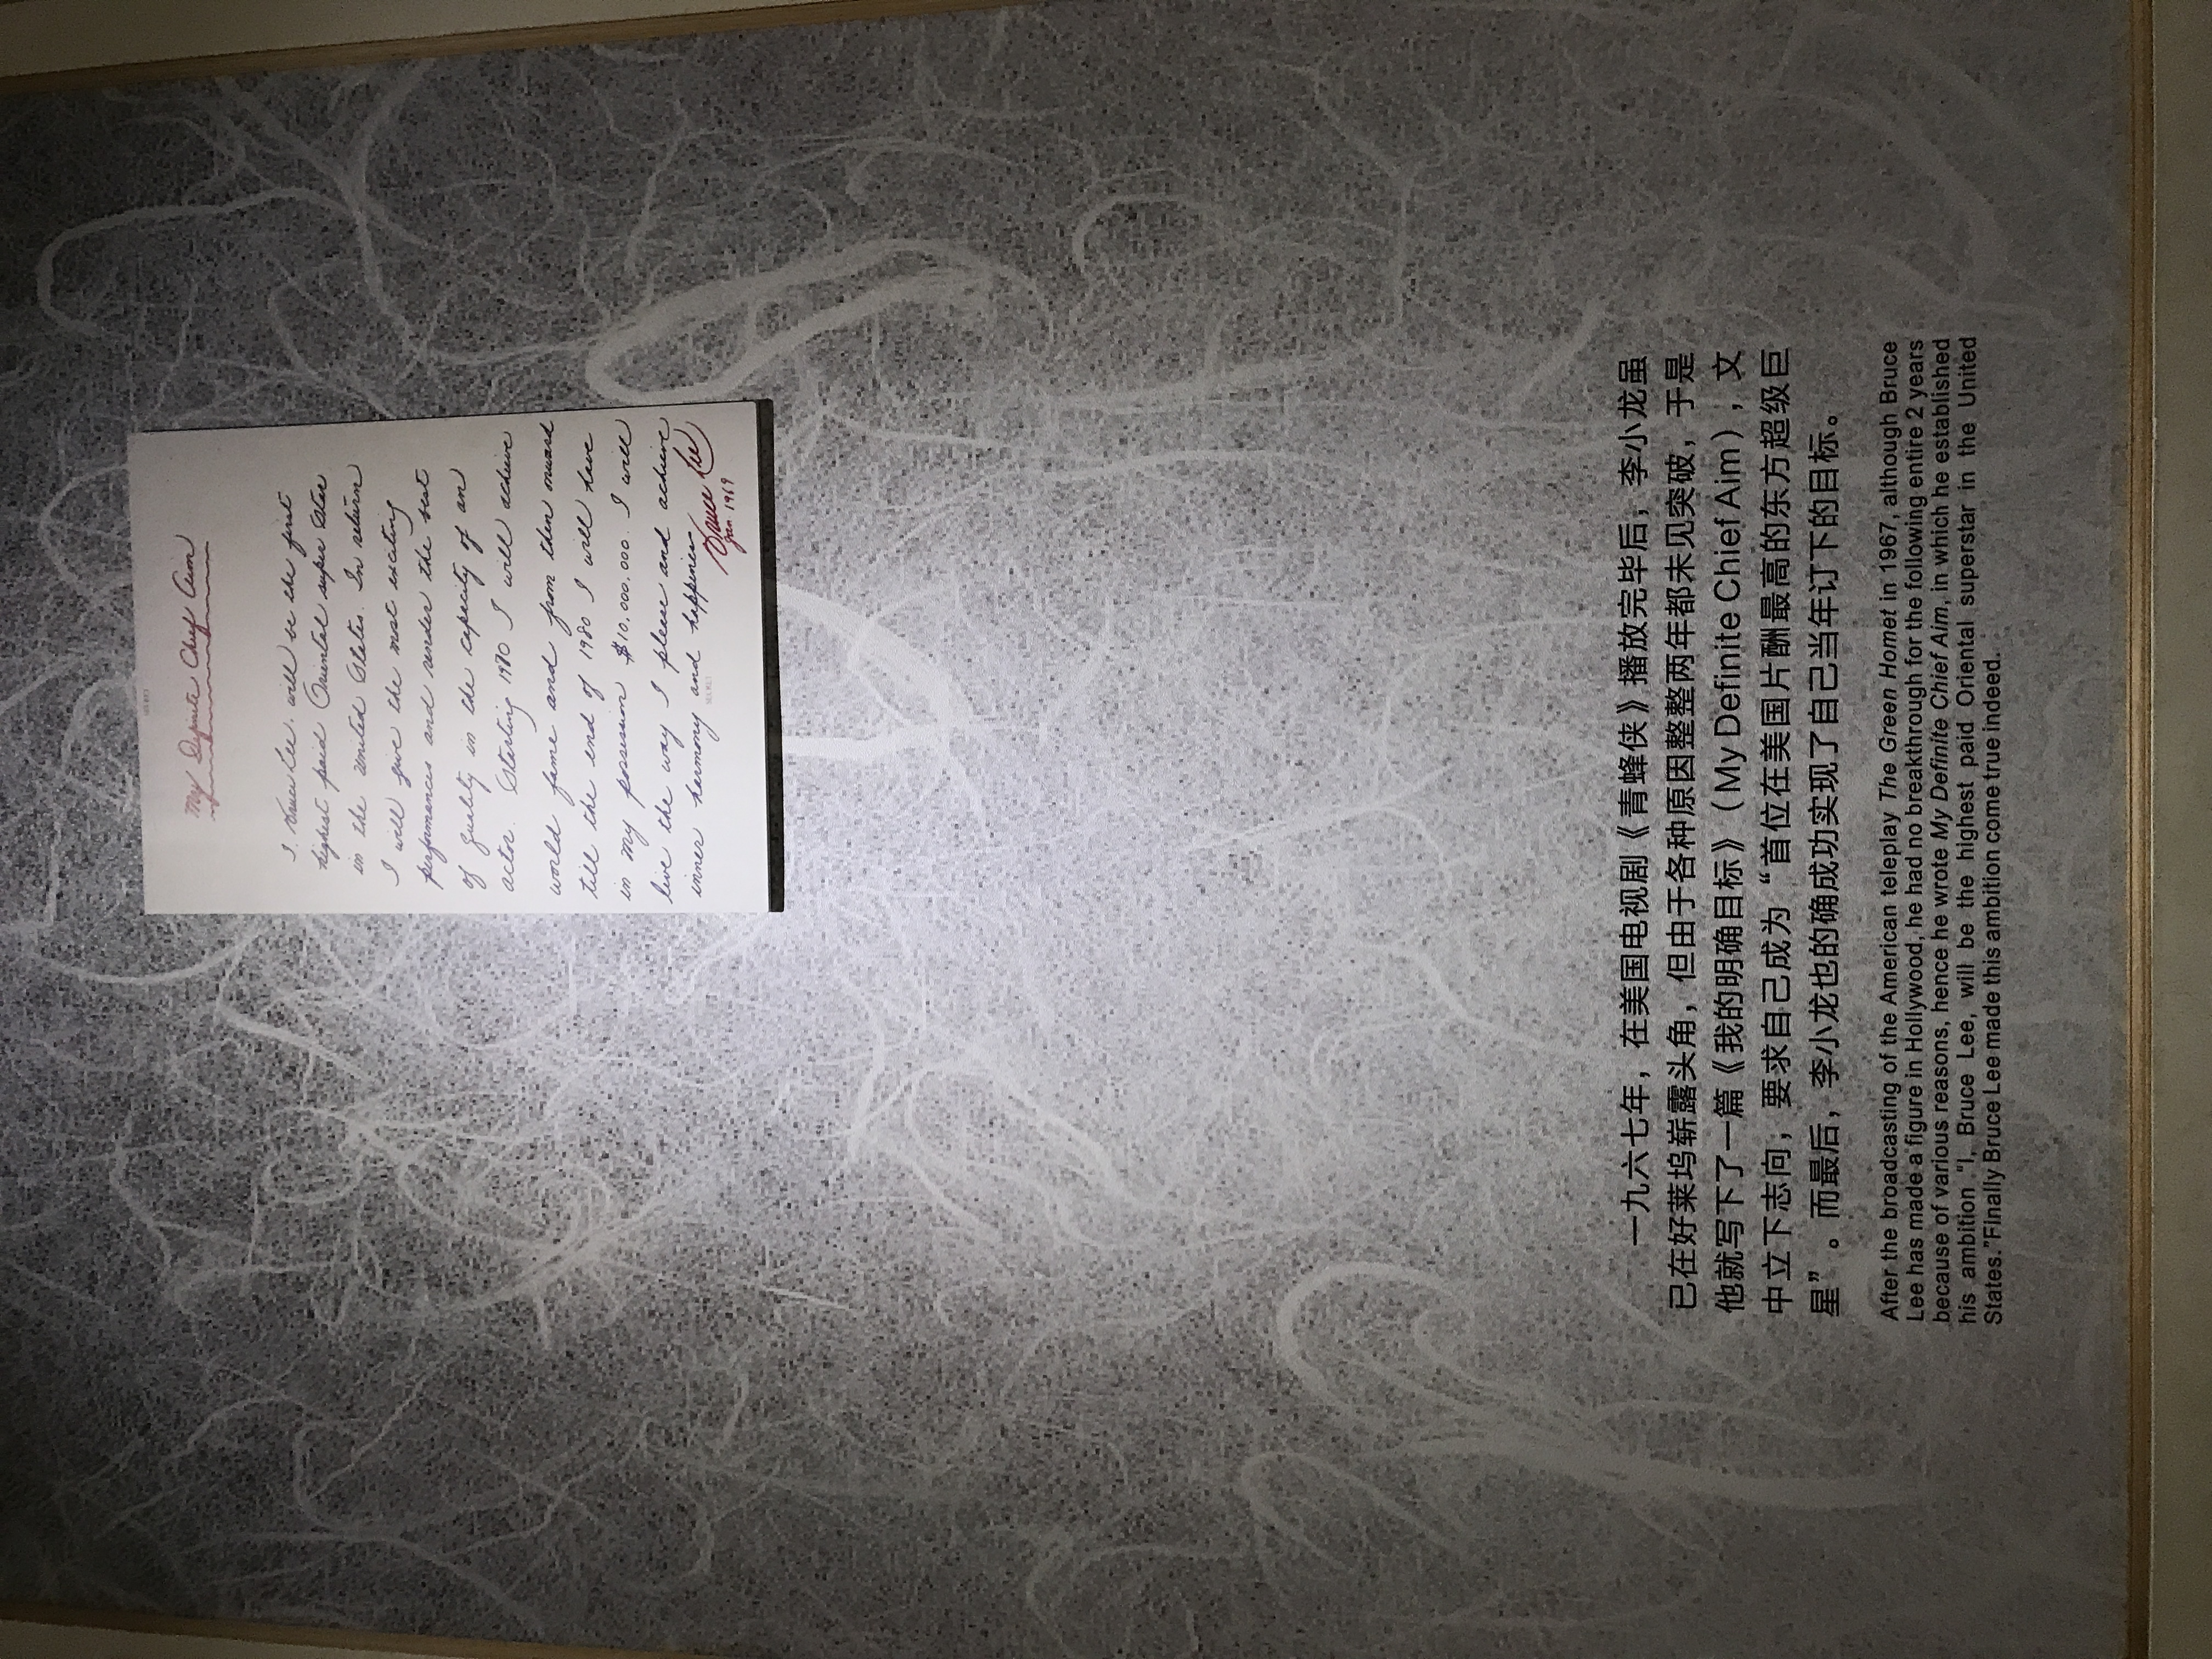 My Definite Chief Aim
I, Bruce Lee, will be the first
highest paid Oriental super star
in the United States. In return
I will give the most exciting
performances and render the best
of quality in the capacity of an
actor. Starting 1970 I will achieve
world fame and from then onward
till the end of 1980 I will have
in my possession $10,000,000. I will
live the way I please and achieve
inner harmony and happiness
Bruce Lee
Jan. 1969
一九六七年，在美国电视剧《青蜂侠》播放完毕后，李小龙虽
已在好莱坞崭露头角，但由于各种原因整整两年都未见突破，于是
他就写下了一篇《我的明确目标》（My Definite Chief Aim），文
中立下志向，要求自己成为“首位在美国片酬最高的东方超级巨
星”。而最后，李小龙也的确成功实现了自己当年订下的目标。
After the broadcasting of the American teleplay The Green Homet in 1967, although Bruce
Lee has made a figure in Hollywood, he had no breakthrough for the following entire 2 years
because of various reasons, hence he wrote My Definite Chief Aim, in which he established
his ambition "I, Bruce Lee, will be the highest paid Oriental superstar in the United
States."Finally Bruce Lee made this ambition come true indeed.